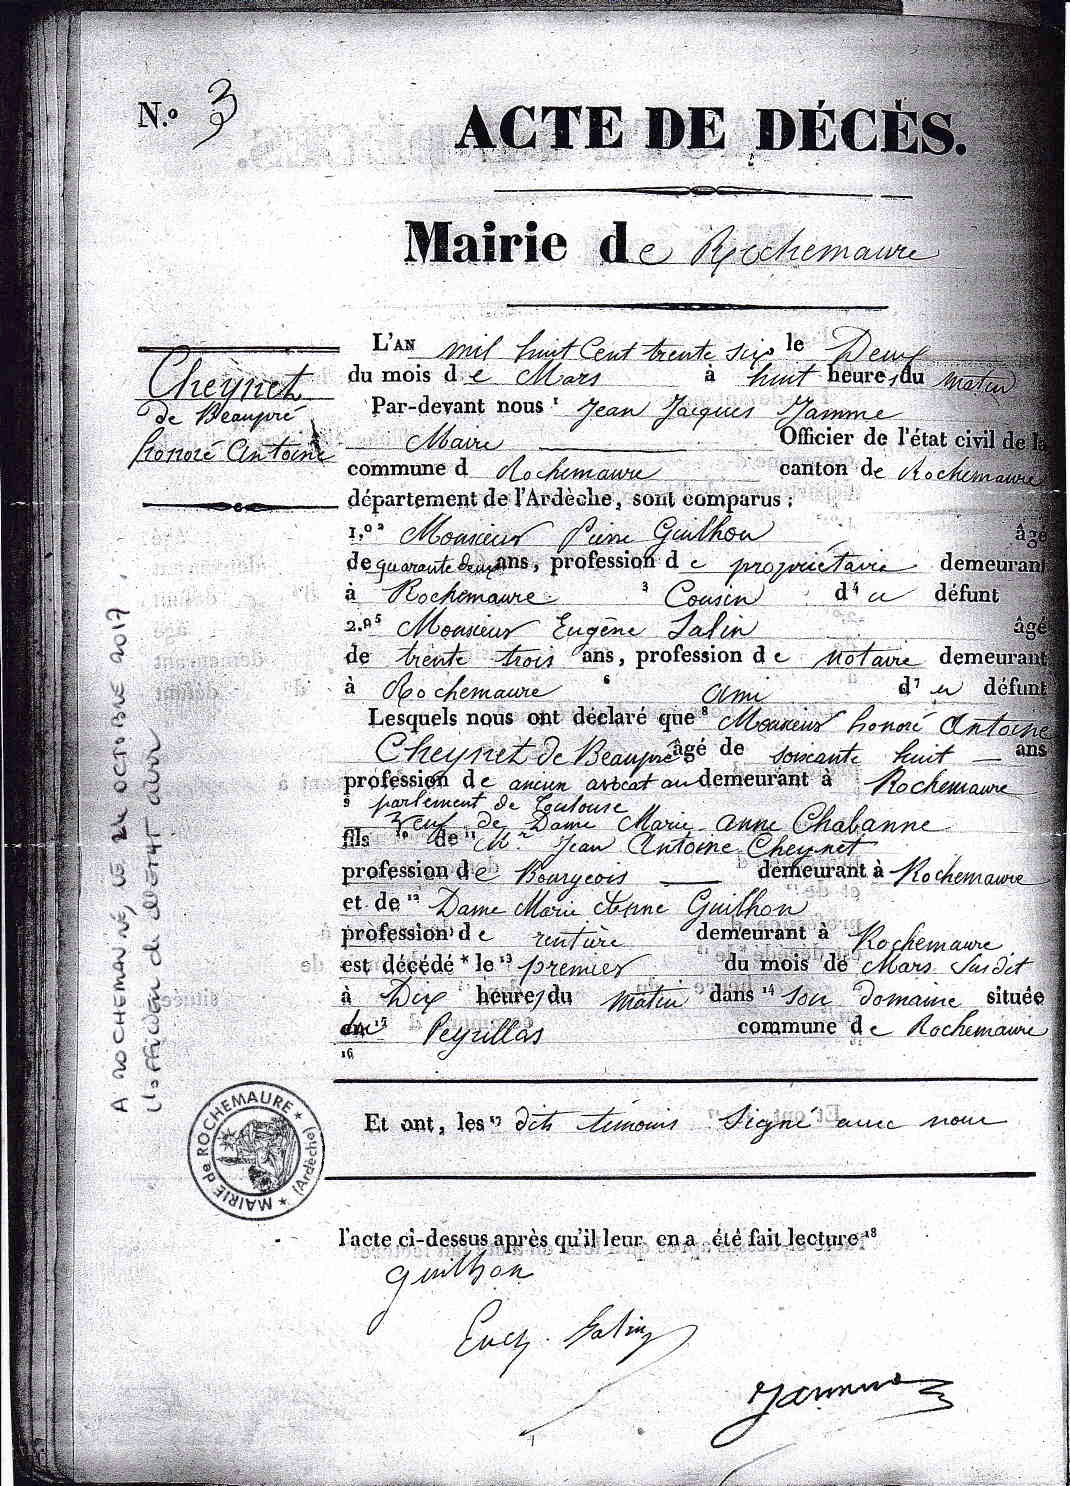 N.º 3
ACTE DE DÉCÈS.
Mairie de Rochemaure
Cheynet
de Beaupré
honoré Antoine
L'AN mil huit Cent trente six le Deux
du mois de Mars à huit heures du matin
Par-devant nous ¹ Jean Jacques Jamme
Maire Officier de l'état civil de la
commune d Rochemaure canton de Rochemaure
département de l'Ardèche, sont comparus :
1.º ² Monsieur Pierre Guilhon âgé
de quarante deux ans, profession de propriétaire demeurant
à Rochemaure ³ Cousin d⁴ u défunt
2.º ⁵ Monsieur Eugène Salin âgé
de trente trois ans, profession de notaire demeurant
à Rochemaure ⁶ ami d⁷ u défunt
Lesquels nous ont déclaré que ⁸ Monsieur honoré Antoine
Cheynet de Beaupré âgé de soixante huit ans
profession de ancien avocat au demeurant à Rochemaure
⁹ parlement de Toulouse
veuf de Dame Marie anne Chabanne
fils ¹⁰ de ¹¹ Mr Jean Antoine Cheynet
profession de Bourgeois demeurant à Rochemaure
et de ¹² Dame Marie Guilhon
profession de rentière demeurant à Rochemaure
est décédé * le ¹³ premier du mois de Mars susdit
à Dix heures du matin dans ¹⁴ son domaine située
¹⁵ Peyrillas commune de Rochemaure
¹⁶
Et ont, les ¹⁷ dits témoins Signé avec nous
l'acte ci-dessus après qu'il leur en a été fait lecture ¹⁸
Guilhon
Eug. Salin
Jamme
A ROCHEMAURE, LE 24 OCTOBRE 2017.
L'officier de l'Etat civil
MAIRIE de ROCHEMAURE * (Ardèche) *